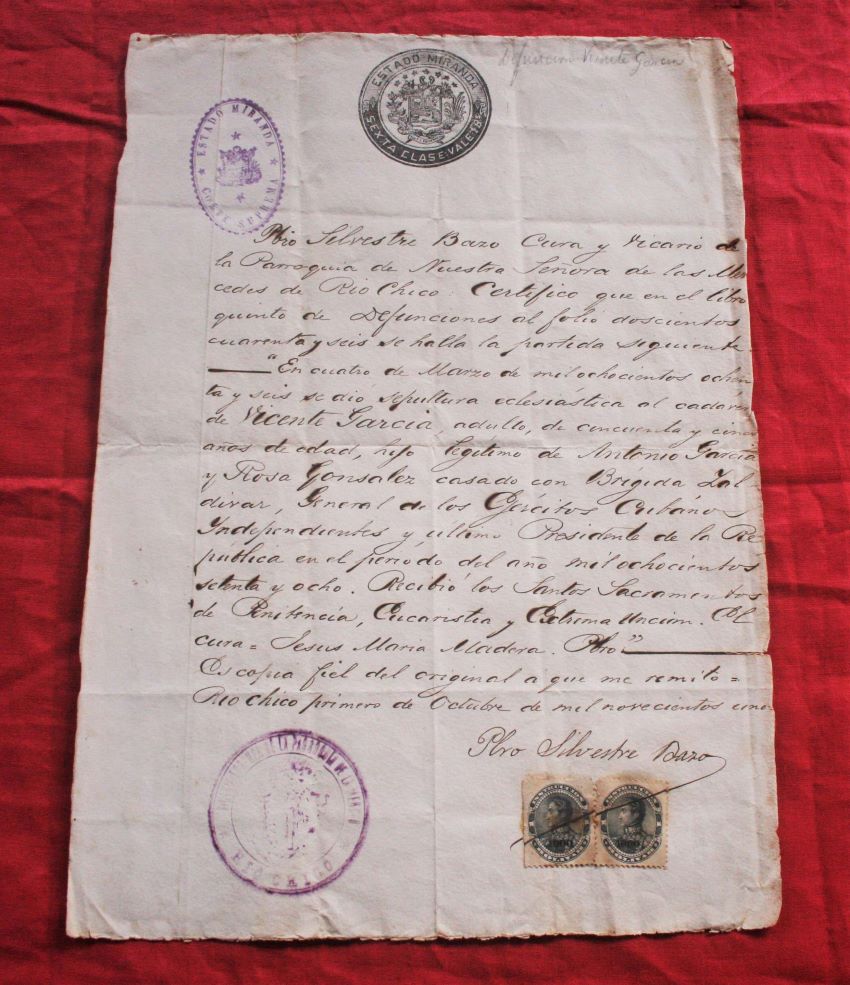 Defuncion Vicente Garcia
ESTADO MIRANDA
SEXTA CLASE: VALE
ESTADO MIRANDA
CORTE SUPREMA
Pbro Silvestre Bazo Cura y Vicario de
la Parroquia de Nuestra Señora de las Mer
cedes de Rio Chico: Certifico que en el libro
quinto de Defunciones al folio doscientos
cuarenta y seis se halla la partida siguiente
"En cuatro de Marzo de mil ochocientos ochen
ta y seis se dió sepultura eclesiastica al cadaver
de Vicente Garcia, adulto, de cincuenta y cinco
años de edad, hijo legitimo de Antonio Garcia
y Rosa Gonsalez casado con Brigida Zal
divar, General de los Ejércitos Cubanos
Independientes y ultimo Presidente de la Re-
publica en el período del año mil ochocientos
setenta y ocho. Recibió los Santos Sacramentos
de Penitencia, Eucaristia y Extrema Uncion. El
cura = Jesus Maria Madera. Pbro"
Es copia fiel del original a que me remito =
Rio Chico primero de Octubre de mil novecientos uno
Pbro Silvestre Bazo
RIO CHICO